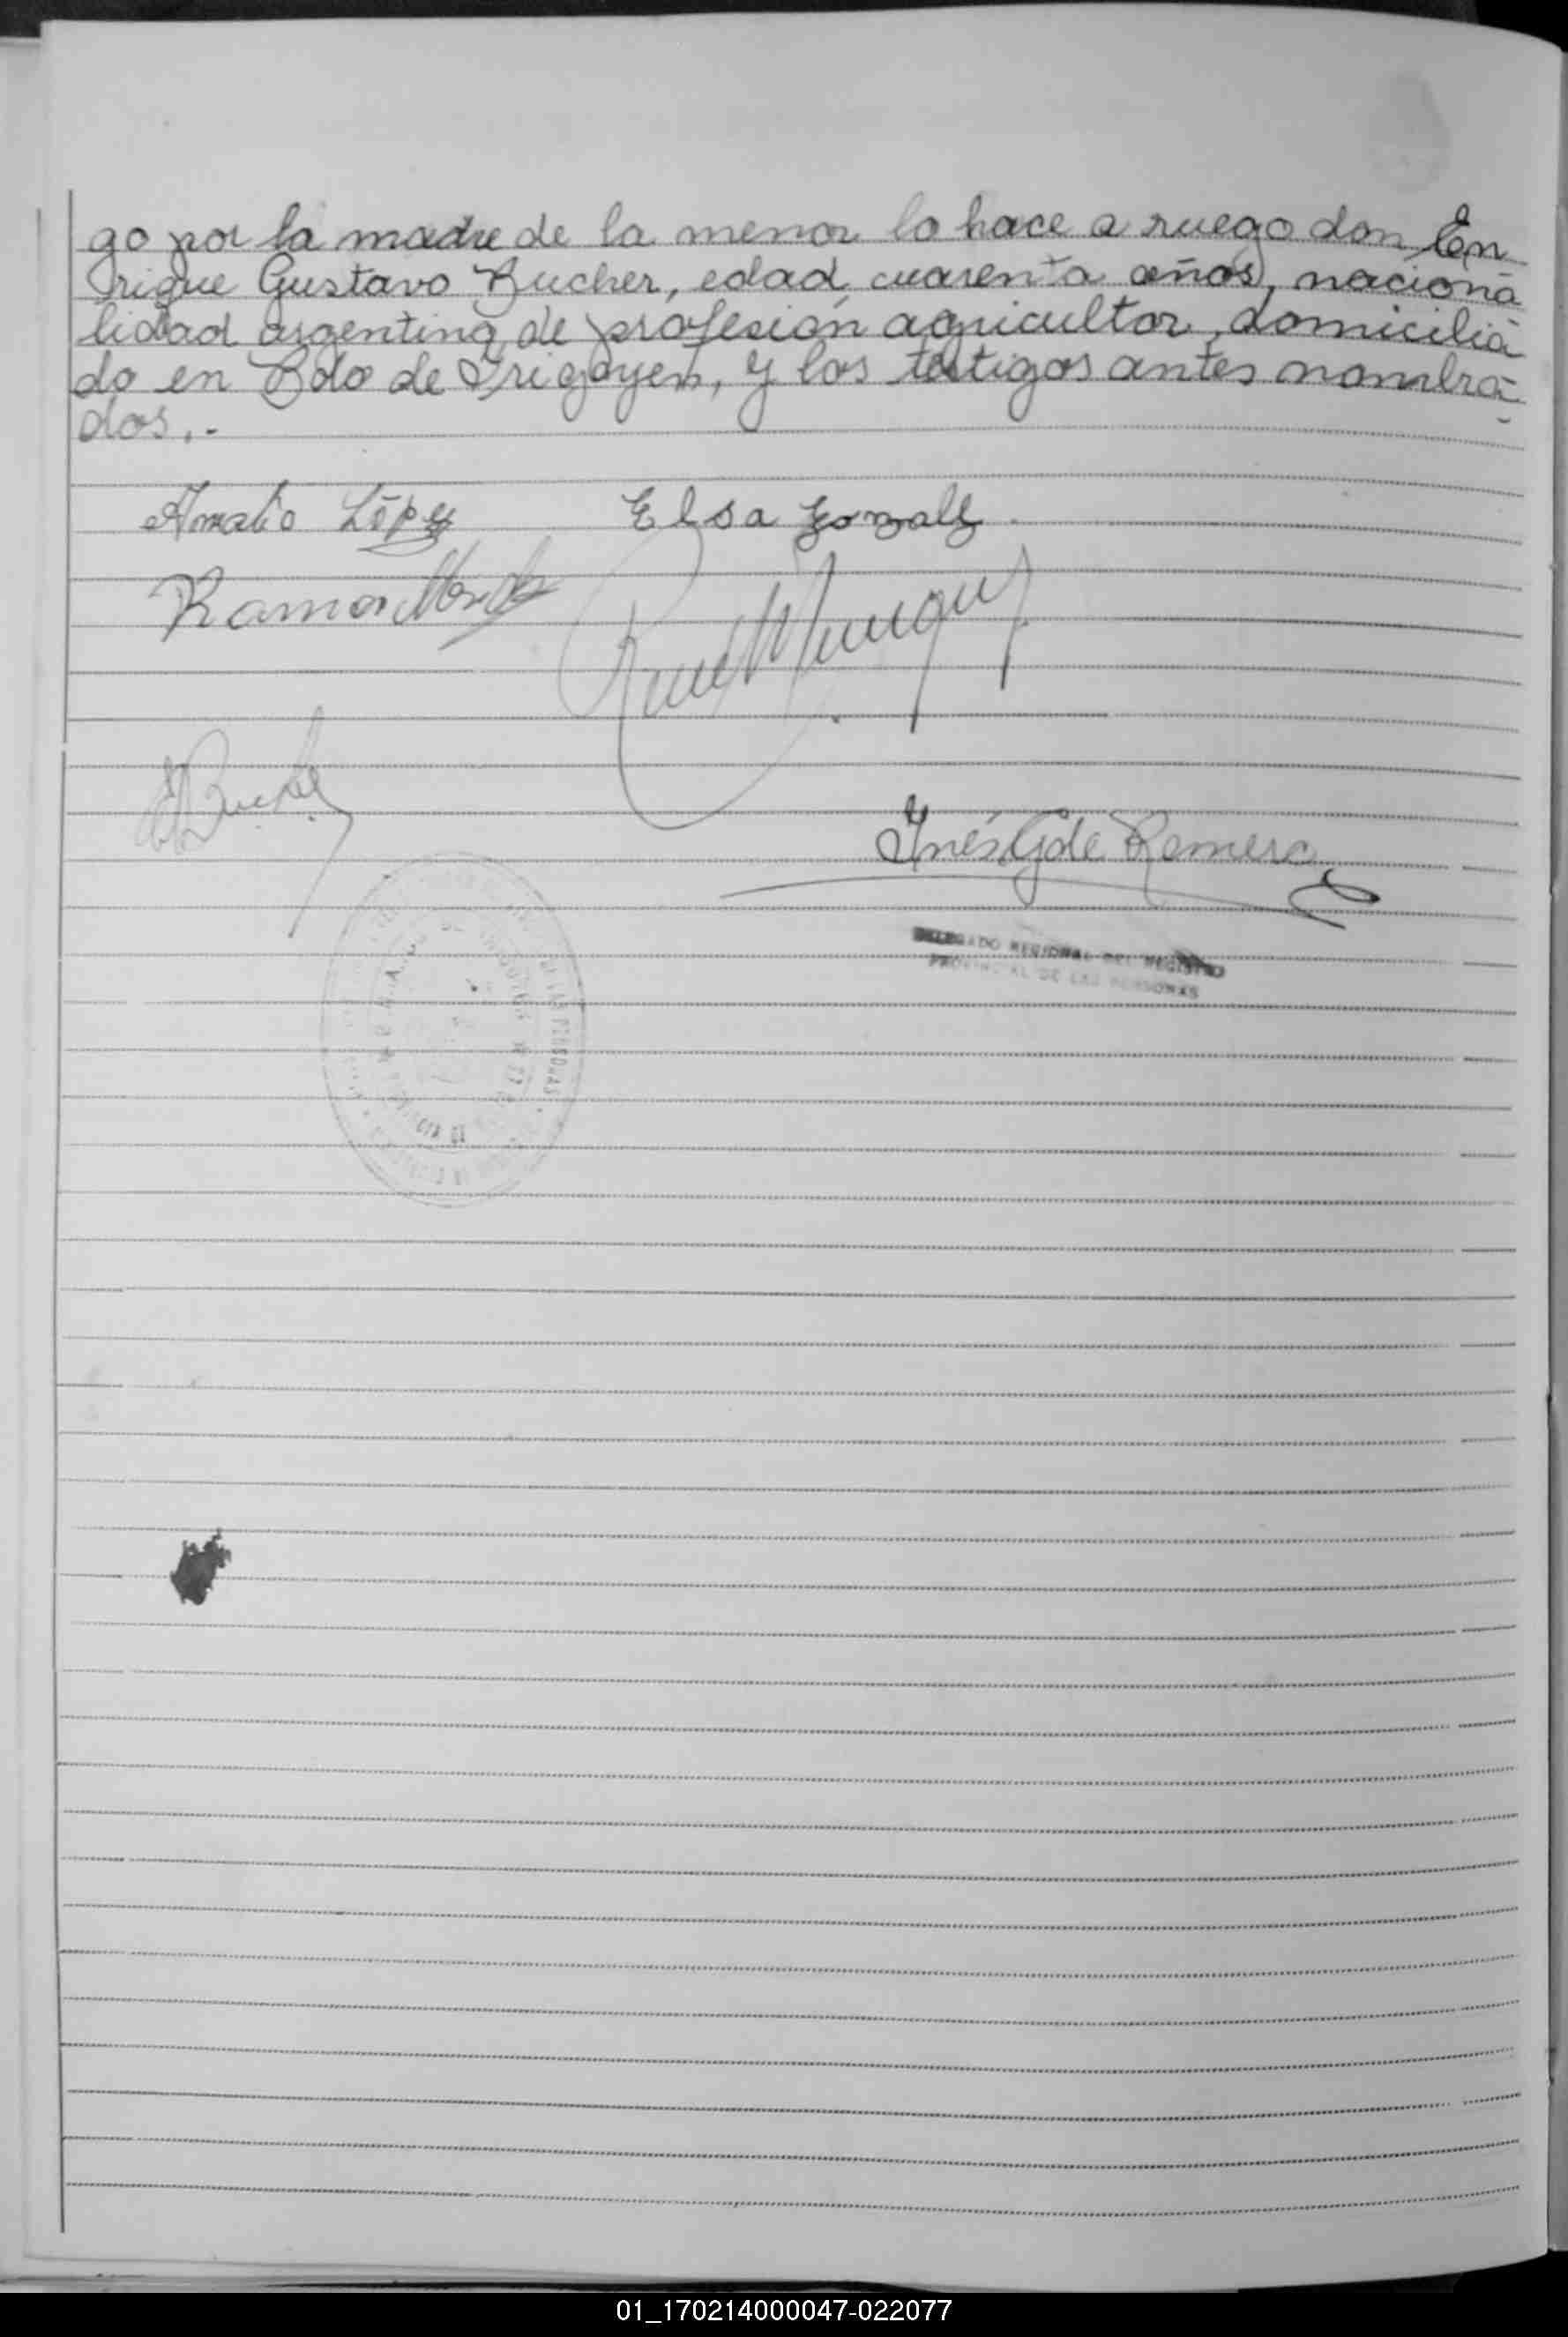 go por la madre de la menor lo hace a ruego don En
rique Gustavo Bucher, edad cuarenta años, naciona
lidad argentina, de profesión agricultor, domicilia
do en Bdo de Irigoyen, y los testigos antes nombra-
dos.-
Amatio López Elsa Gonzalz
Ramon
Bucher
Inés G. de Romero
DELEGADO REGIONAL DEL REGISTRO
PROVINCIAL DE LAS PERSONAS
01_170214000047-022077